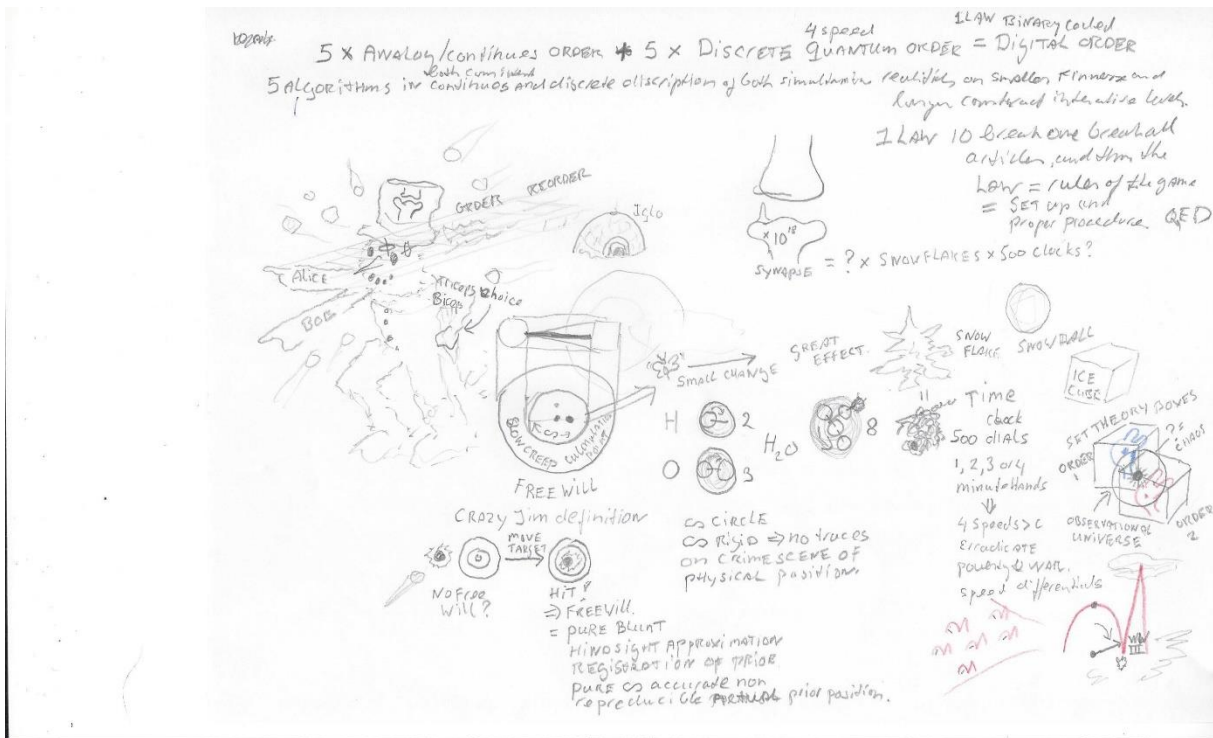 4 speed
1 LAW BINARY coded
5 x Analog/continues ORDER + 5 x Discrete QUANTUM ORDER = DIGITAL ORDER
both consistent
5 ALGORITHMS in continues and discrete discription of both simultanin realities on smaller Finnera and
larger construct interative levels.
1 LAW 10 break one break all
articles, and thm the
LAW = rules of the game
= SET up and
proper procedure. QED
REORDER
ORDER
Iglo
x 10¹⁸
SYNAPSE = ? x SNOWFLAKES x 500 clocks?
ALICE
BOB
Triceps choice
Biceps
SMALL CHANGE
GREAT
EFFECT.
SNOW
FLAKE
SNOWBALL
ICE
CUBE
H 2
O 3
H₂O 8
BLOWCREEP CULMINATION POINT
FREE WILL
TIME
clock
500 dials
1, 2, 3 or 4
minute Hands
4 speeds > c
Erradicate
poverty & WAR.
speed differentials
SET THEORY BOXES
ORDER
1
? =
CHAOS
OBSERVATIONAL
UNIVERSE
ORDER
2
CRAZY Jim definition
MOVE
TARGET
No Free
Will?
HIT!
=> FREEWILL.
= pure BLUNT
HINDSIGHT APPROXIMATION
REGISTRATION OF PRIOR
pure ∞ accurate non
reproducible prior position.
∞ CIRCLE
∞ RIGID => no traces
on CRIMESCENE OF
physical position.
WW
III